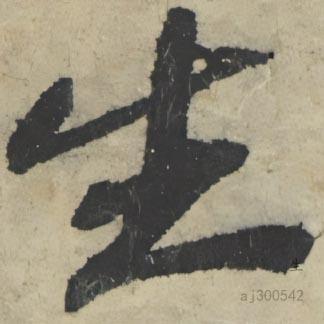 生
生
aj300542